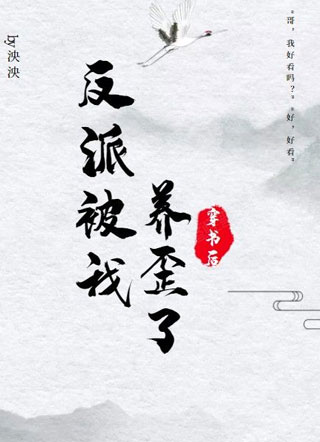 "哥，我好看吗？""好，好看"
by泱泱
穿书后
反派被我
养歪了